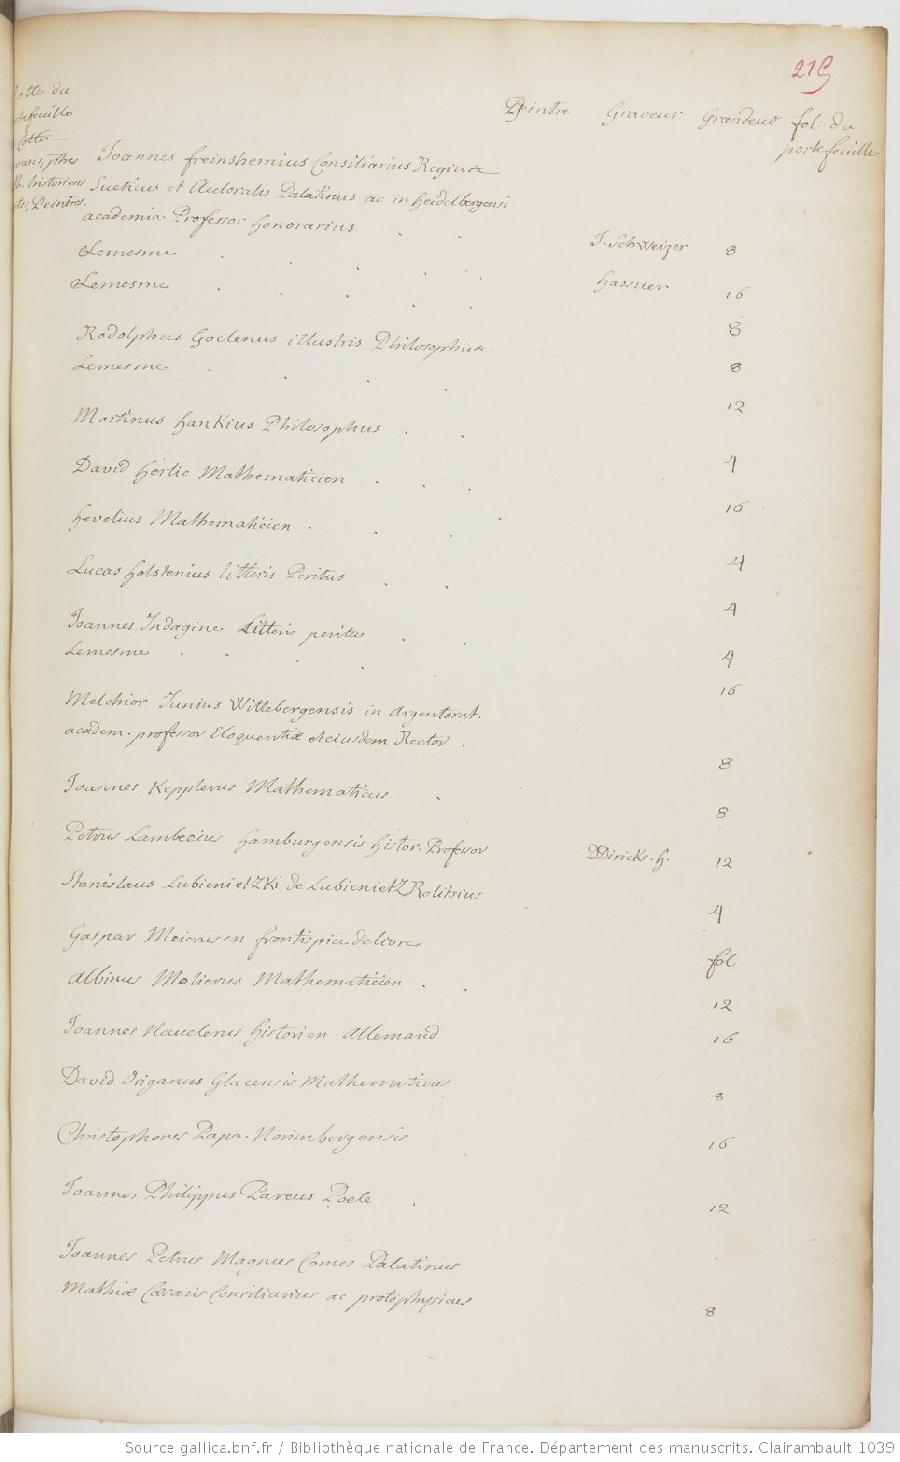 219
Peintre Graveur Grandeur fol: du
portefeuille
Cotte du
Joannes freinshemius Consiliarius Reginæ
Sueticus et Electoralis Palatinus ac in heidelbergensi
academia Professor honorarius . . J. Schweizer 8
Lemesme . . . . .
Lemesme . . . . . hassuer 16
8
Rodolphus Goclenus illustris Philosophus
Lemesme . . . . 8
12
Martinus hankius Philosophus . .
4
David herlic Mathematicien . . .
16
hevelius Mathematicien . . . .
4
Lucas holstenius litteris Peritus . .
4
Joannes Indagine Litteris peritus . .
Lemesme . . . . 4
16
Melchior Junius Wittebergensis in Argentorat.
academ. professor Eloquentiæ et eiusdem Rector .
8
Joannes Kepplerus Mathematicus .
8
Petrus Lambecius hamburgensis histor. Professor DDiricks. h. 12
Stanislaus LubienietZKi de LubienietZ Rolitsius
4
Gaspar en frontispice de livre
fol
Albinus Molierus Mathematicien . .
12
Joannes Nauclerus historien Allemand 16
David Origanus Glacensis Mathematicus
8
Christophorus Papa. Norimbergensis
16
Joannes Philippus Pareus Poete .
12
Joannes Petrus Magnus Comes Palatinus
Mathiæ Cæsaris Consiliarius ac protophysicus
8
Source gallica.bnf.fr / Bibliothèque nationale de France. Département des manuscrits. Clairambault 1039